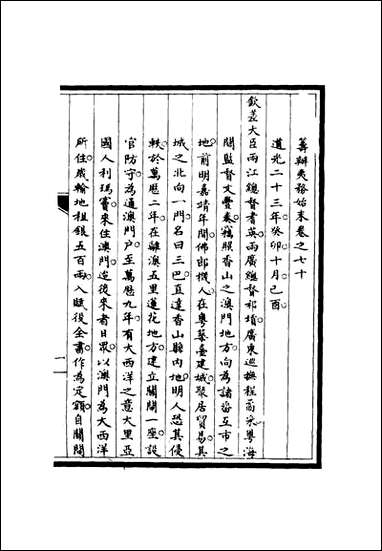 籌辦夷務始末卷之七十
道光二十三年癸卯十月己酉
欽差大臣兩江總督耆英兩廣總督祁𡎴廣東巡撫程矞采粵海
關監督文豐奏竊照香山之澳門地方向為諸番互市之
地前明嘉靖年間佛郎機人在粵築臺建城聚居貿易其
城之北向一門名曰三巴直達香山縣內地明人恐其侵
軼於萬厯二年在離澳五里蓮花地方建立關閘一座設
官防守為通澳門户至萬厯九年有大西洋之意大里亞
國人利瑪竇來住澳門迨後來者日眾以澳門為大西洋
所住歲輸地租銀五百兩入賦役全書作為定額自關閘
一